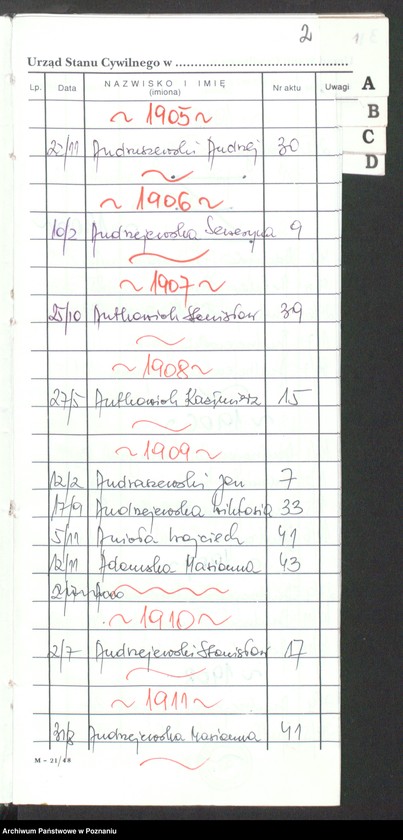 2
Urząd Stanu Cywilnego w
Lp. Data NAZWISKO I IMIĘ (imiona) Nr aktu Uwagi
A
B
C
D
~ 1905 ~
Andraszewski Andrzej 30
~ 1906 ~
10/2 Andrzejewska Seweryna 9
~ 1907 ~
25/10 Antkowiak Stanisław 39
~ 1908 ~
27/5 Antkowiak Kazimierz 15
~ 1909 ~
12/2 Andraszewski Jan 7
17/9 Andrzejewska Wiktoria 33
5/11 Anioła Wojciech 41
12/11 Adamska Marianna 43
~ 1910 ~
2/7 Andrzejewski Stanisław 17
~ 1911 ~
Andrzejewska Marianna 41
M – 21/48
Archiwum Państwowe w Poznaniu